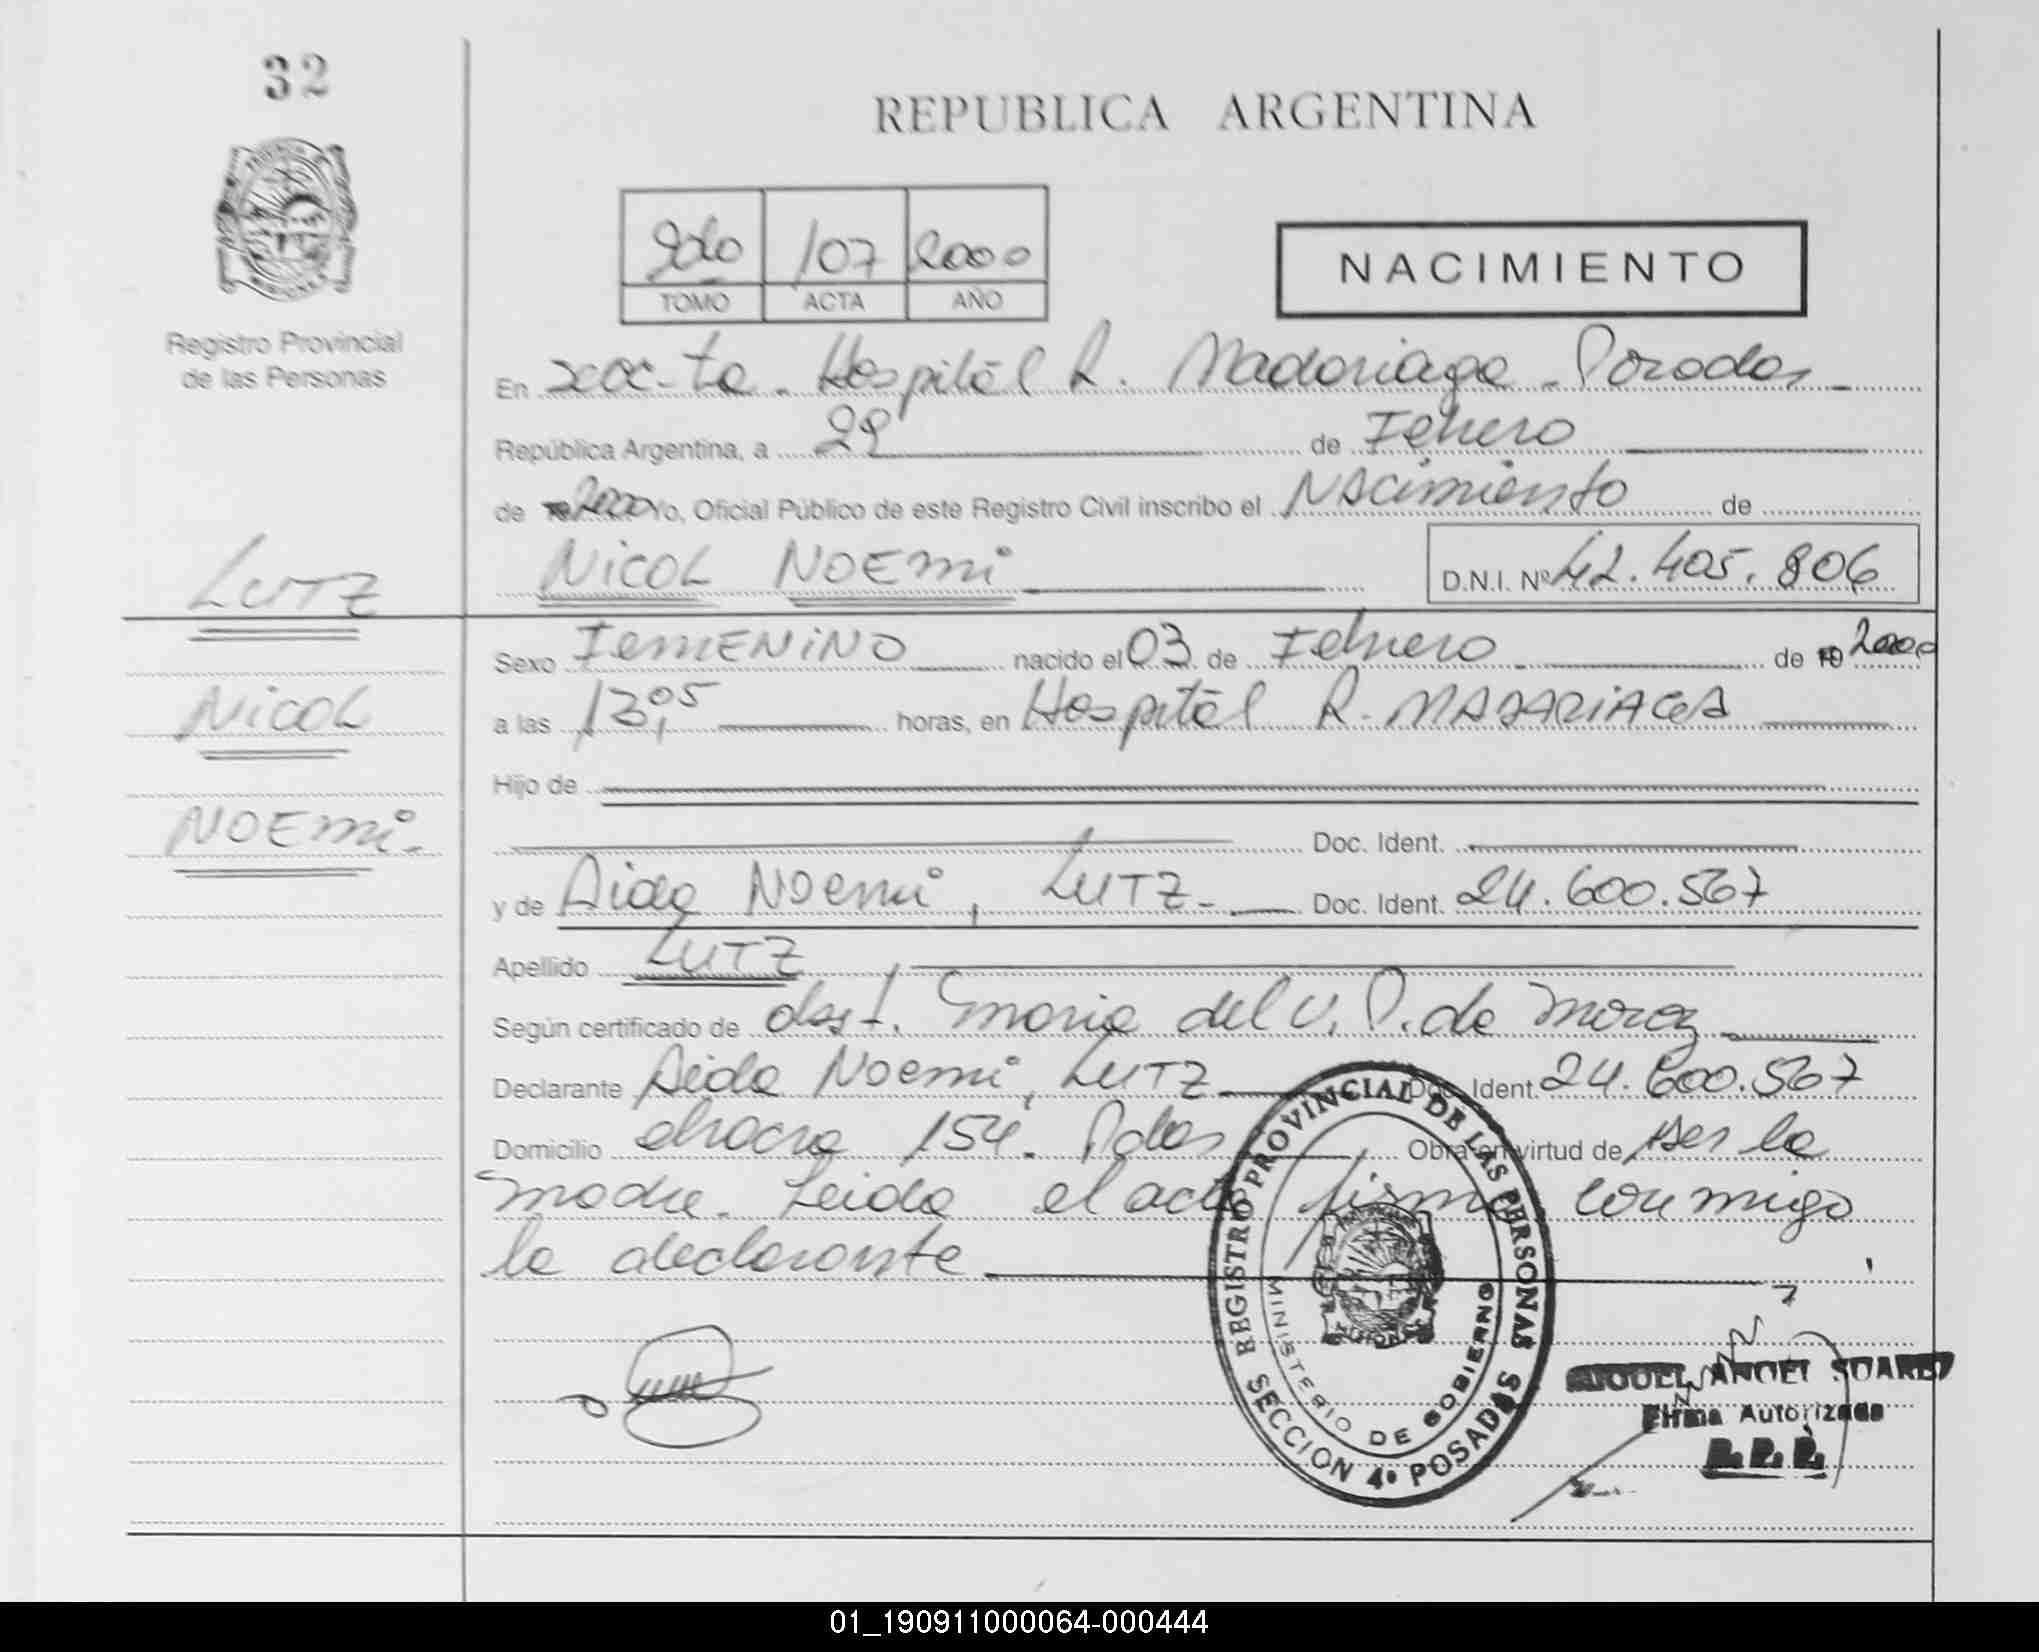 32
REPUBLICA ARGENTINA
107 2000
TOMO ACTA AÑO
NACIMIENTO
Registro Provincial
de las Personas
En Hospital R. Madariaga - Posadas
República Argentina, a 29 de Febrero
de 2000 Yo, Oficial Público de este Registro Civil inscribo el Nacimiento de
NICOL NOEMI D.N.I. Nº 42.405.806
LUTZ
NICOL
NOEMI.
Sexo FEMENINO nacido el 03 de Febrero de 19 2000
a las 13,05 horas, en Hospital R. MADARIAGA
Hijo de
Doc. Ident.
y de Aida Noemi, LUTZ - Doc. Ident. 24.600.567
Apellido LUTZ
Según certificado de obst. Maria del V. P. de
Declarante Aida Noemi, LUTZ Doc. Ident. 24.600.567
Domicilio chacra 154. Pdas Obra en virtud de ser la
madre. Leida el acta firma conmigo
la declarante
REGISTRO PROVINCIAL DE LAS PERSONAS
MINISTERIO DE GOBIERNO
SECCION 4º POSADAS
MIGUEL ANGEL SUAREZ
Firma Autorizada
01_190911000064-000444